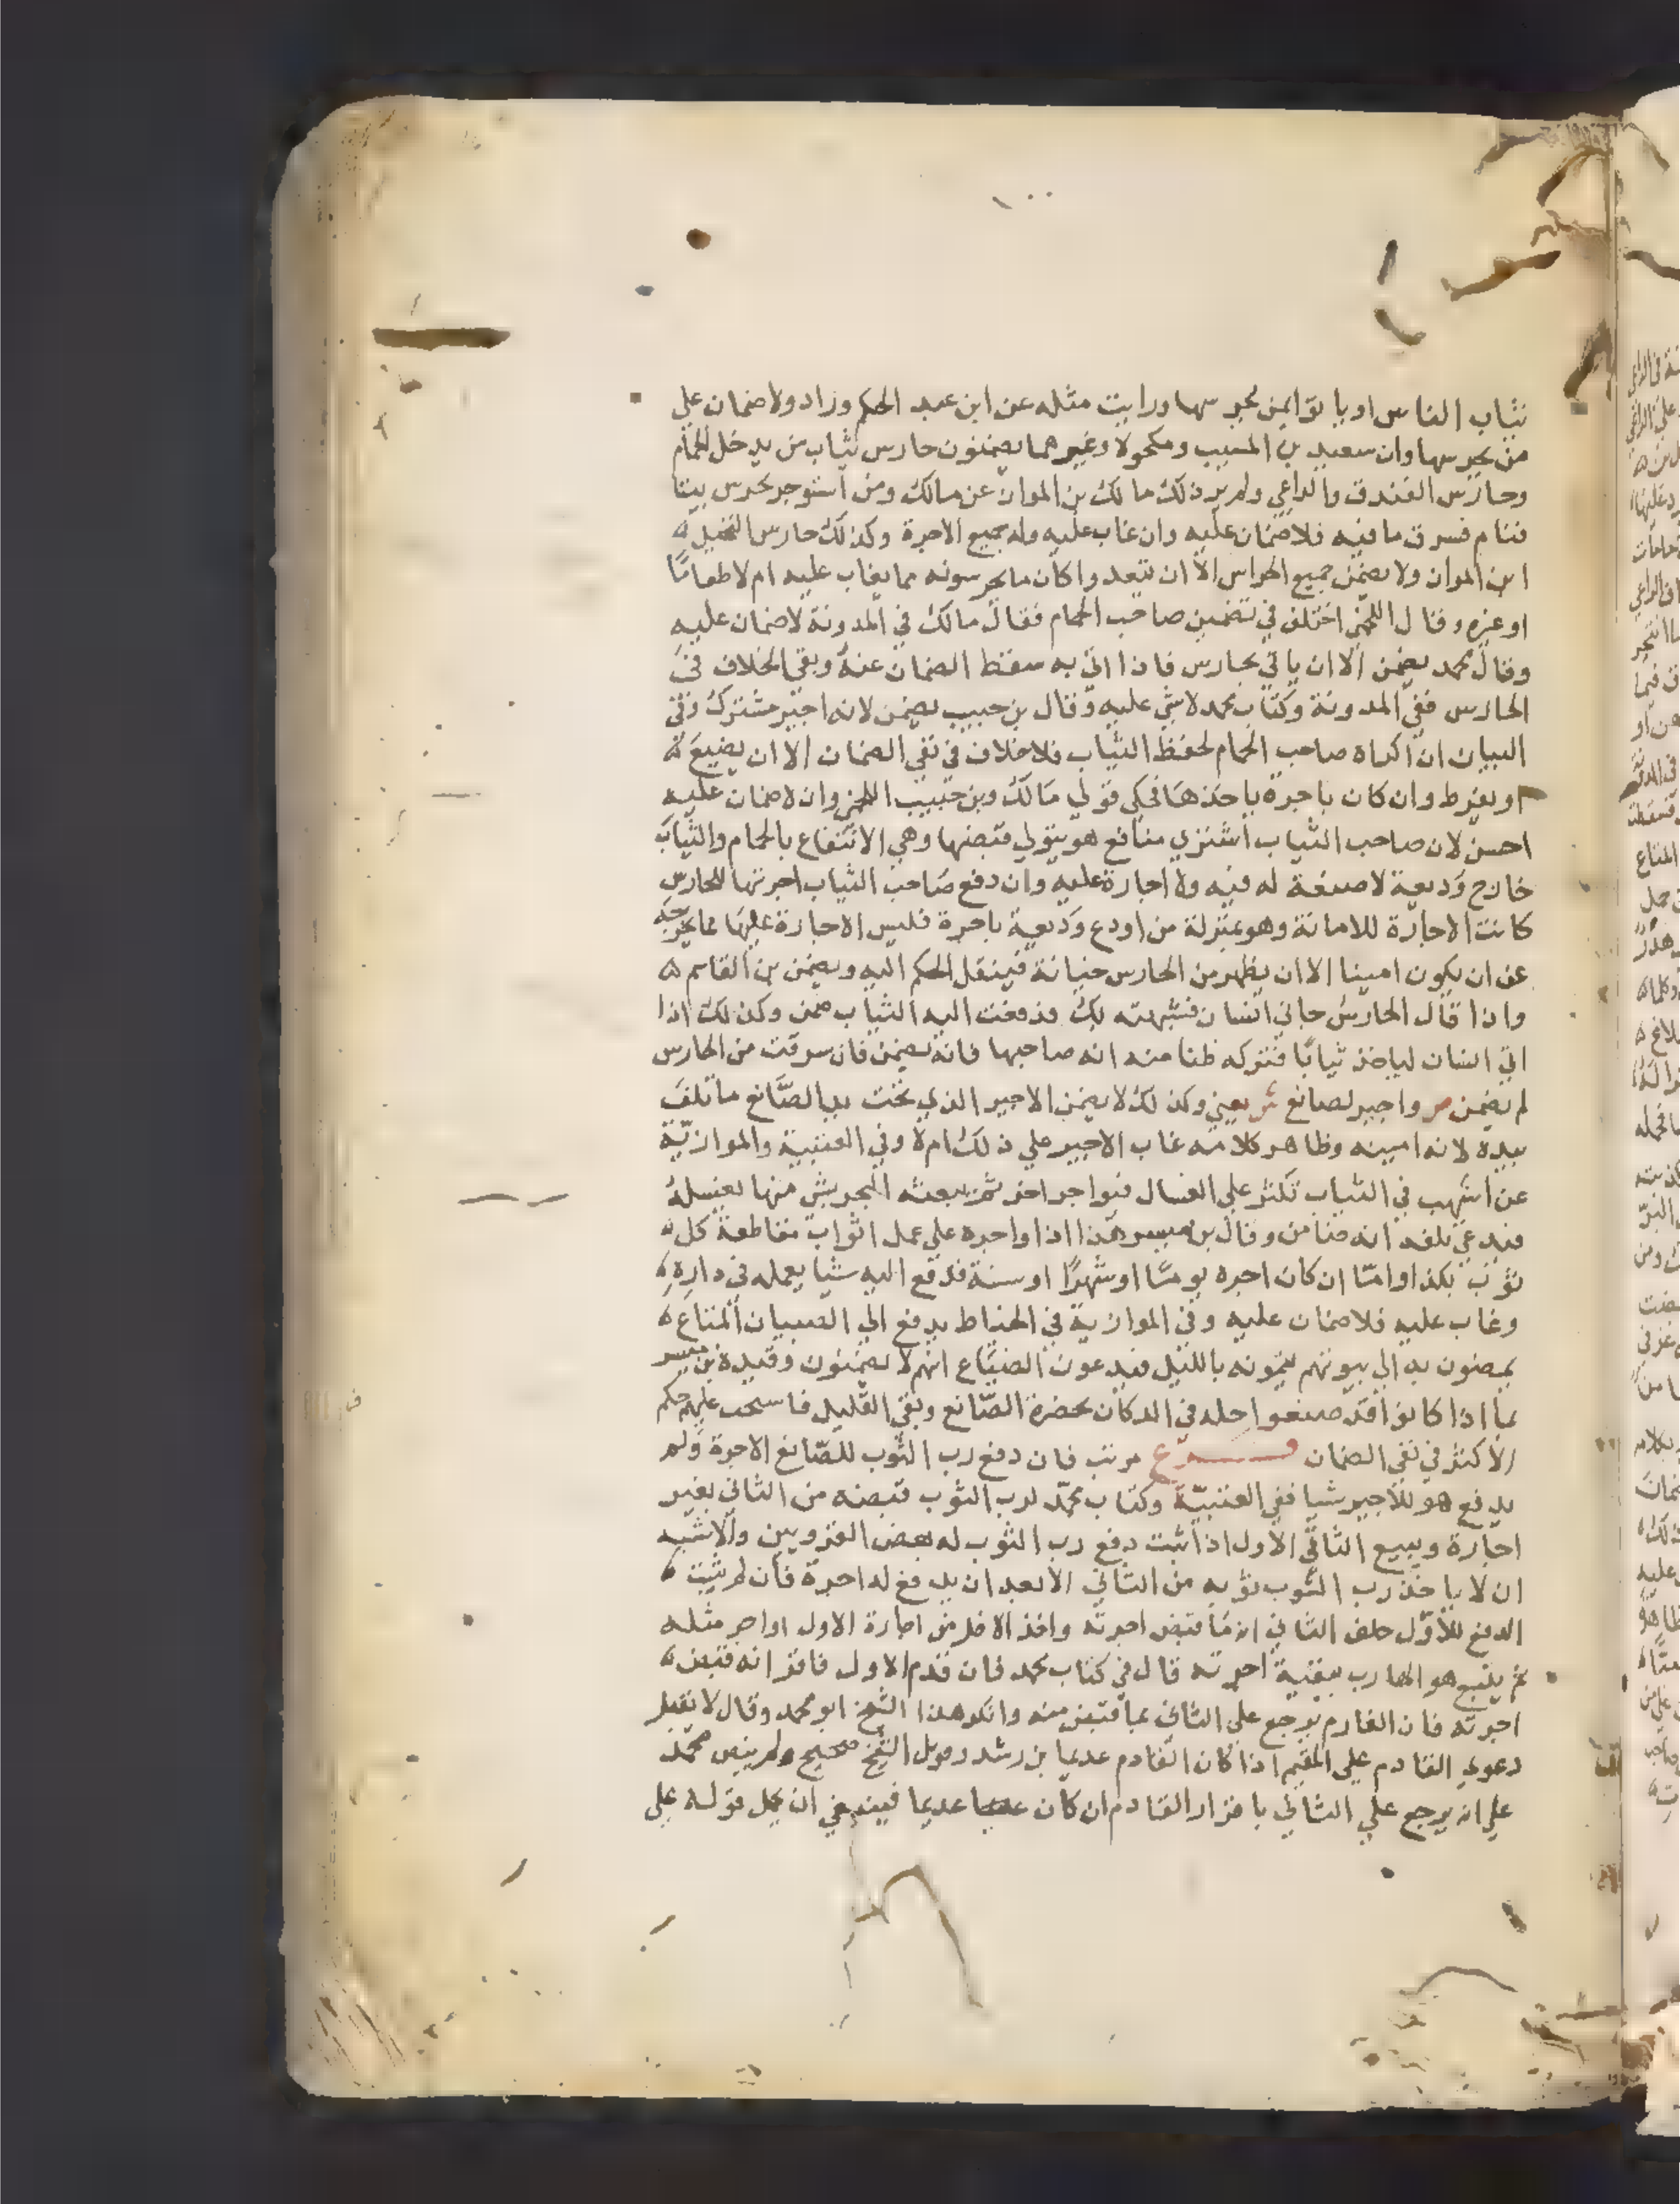 ١٠٠
ثياب الناس او ياتوا بمن يحرسها ورايت مثله عن ابن عبد الحكم وزاد ولا ضمان علي
من يحرسها وان سعيد بن المسيب ومكحولا وغيرهما يضمنون حارس ثياب من يدخل الحمام
وحارس الفندق والراعي ولم ير ذلك مالك بن المواز عن مالك ومن استوجر يحرس بيتا
فنام فسرق ما فيه فلا ضمان عليه وان غاب عليه وله جميع الاجرة وكذلك حارس النخيل
ابن المواز ولا يضمن جميع الحراس الا ان يتعدوا كان ما يحرسونه مما يغاب عليه ام لا طعامًا
او غيره وقال اللخمي اختلف في تضمين صاحب الحمام فقال مالك في المدونة لا ضمان عليه
وقال محمد يضمن الا ان ياتي بحارس فاذا اتى به سقط الضمان عنه وبقي الخلاف في
الحارس ففي المدونة وكتاب محمد لا شي عليه وقال بن حبيب يضمن لانه اجير مشترك وفي
البيان ان اكراه صاحب الحمام لحفظ الثياب فلا خلاف في نفي الضمان الا ان يضيع
او يفرط وان كان باجرة ياخذها فحكي قولي مالك وبن حبيب اللخمي وان لا ضمان عليه
احسن لان صاحب الثياب اشتري منافع هو يتولي قبضها وهي الانتفاع بالحمام والثياب
خارج وديعة لا صنعة له فيه ولا اجارة عليه وان دفع صاحب الثياب اجرتها للحارس
كانت الاجارة للامانة وهو بمنزلة من اودع وديعة باجرة فليس الاجارة عليها مما يخرجه
عن ان يكون امينا الا ان يظهر من الحارس خيانة فينقل الحكم اليه ويضمن بن القاسم
واذا قال الحارس جاني انسان فشبهته بك فدفعت اليه الثياب ضمن وكذلك اذا
اتي انسان لياخذ ثيابًا فتركه ظنا منه انه صاحبها فانه يضمن فان سرقت من الحارس
لم يضمن ص واجير لصانع ش يعني وكذلك لا يضمن الاجير الذي تحت يد الصَّانع ما تلف
بيده لانه امينه وظاهر كلامه غاب الاجير علي ذلك ام لا وفي العتبية والموازيّة
عن اشهب في الثياب تكثر علي الغسال فيواجر اخر يبعثه البحر بشي منها يغسله
فيدعي تلفه انه ضامن وقال بن ميسر هذا اذا واجره علي عمل اثواب مقاطعة كل
ثوب بكذا واما ان كان اجره يومًا او شهرًا او سنة فدفع اليه شيا يعمله في داره
وغاب عليه فلا ضمان عليه وفي الموازية في الخياط يدفع الي الصبيان المتاع
يمضون به الي بيوتهم يتمونه بالليل فيدعون الضياع انهم لا يضمنون وقيده بن ميسر
بما اذا كانوا قد صنعوا جله في الدكان بحضرة الصّانع وبقي القليل فاسحب عليهم حكم
الاكثر في نفي الضمان فرع مرتب فان دفع رب الثوب للصّانع الاجرة ولم
يدفع هو للاجير شيا ففي العتبيّة وكتاب محمّد لرب الثوب قبضه من الثاني بغير
اجارة ويبيع الثاني الاول اذا ثبت دفع رب الثوب له بعض القرويين والاشبه
ان لا ياخذ رب الثوب ثوبه من الثاني الا بعد ان يدفع له اجرة فان لم يثبت
الدفع للاوّل حلف الثاني انه ما قبض اجرته واخذ الاقل من اجارة الاول او اجر مثله
ثم يتبع هو الهارب ببقية اجرته قال في كتاب محمد فان قدم الاول فاقر انه قبض
اجرته فان الغارم يرجع علي الثاني بما قبض منه وانكر هذا الشيخ ابو محمد وقال لا تقبل
دعوي القادم علي المقيم اذا كان القادم عديما بن رشد وقول الشيخ صحيح ولم ينص محمد
علي انه يرجع علي الثاني باقرار القادم ان كان عديما فينبغي ان يحمل قوله علي